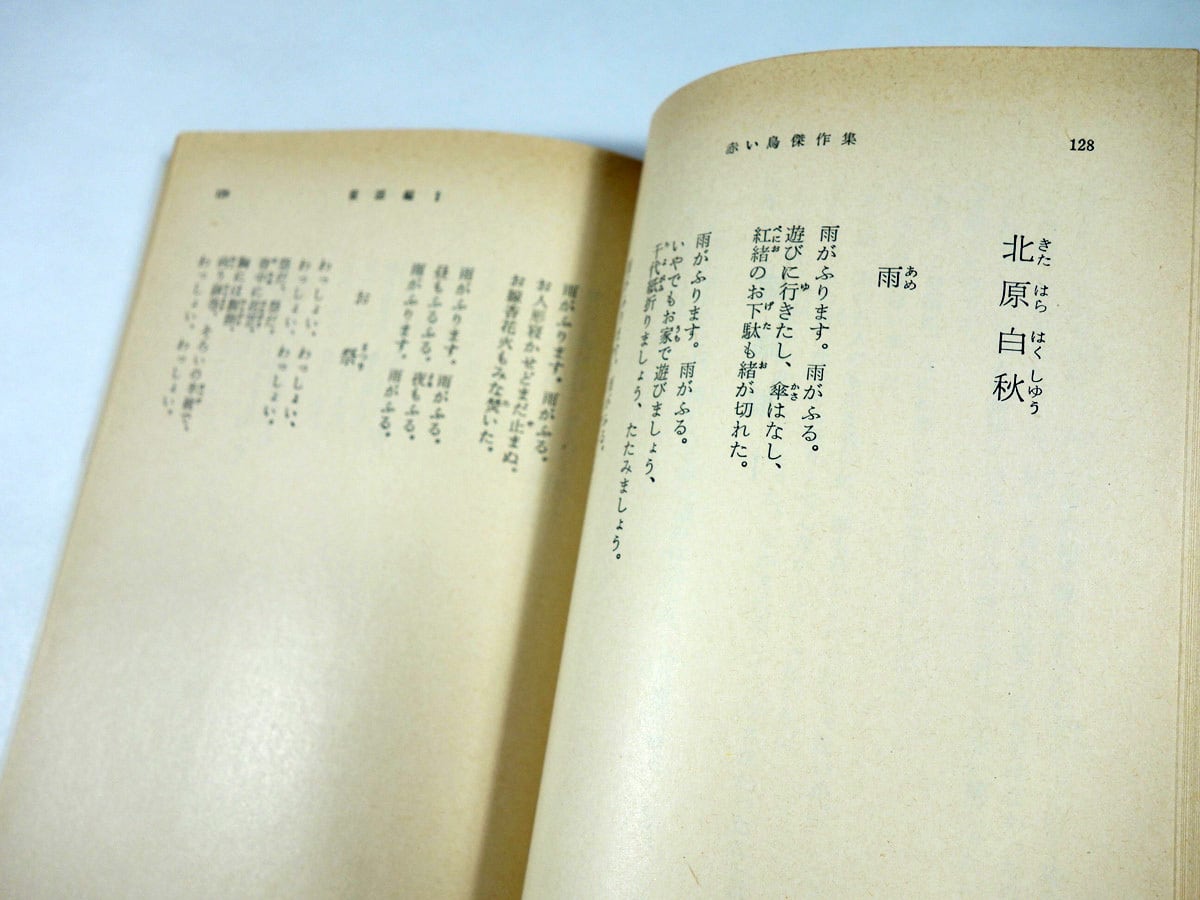 赤い鳥傑作集
128
北原白秋
きたはらはくしゅう
雨
あめ
雨がふります。雨がふる。
遊びに行きたし、傘はなし、
紅緒のお下駄も緒が切れた。
雨がふります。雨がふる。
いやでもお家で遊びましょう、
千代紙折りましょう、たたみましょう。
雨がふります。雨がふる。
お人形寝かせどまだ止まぬ。
お線香花火もみな焚いた。
雨がふります。雨がふる。
昼もふるふる。夜もふる。
雨がふります。雨がふる。
お祭
まつり
わっしょい、わっしょい、
わっしょい、わっしょい。
祭だ、祭だ。